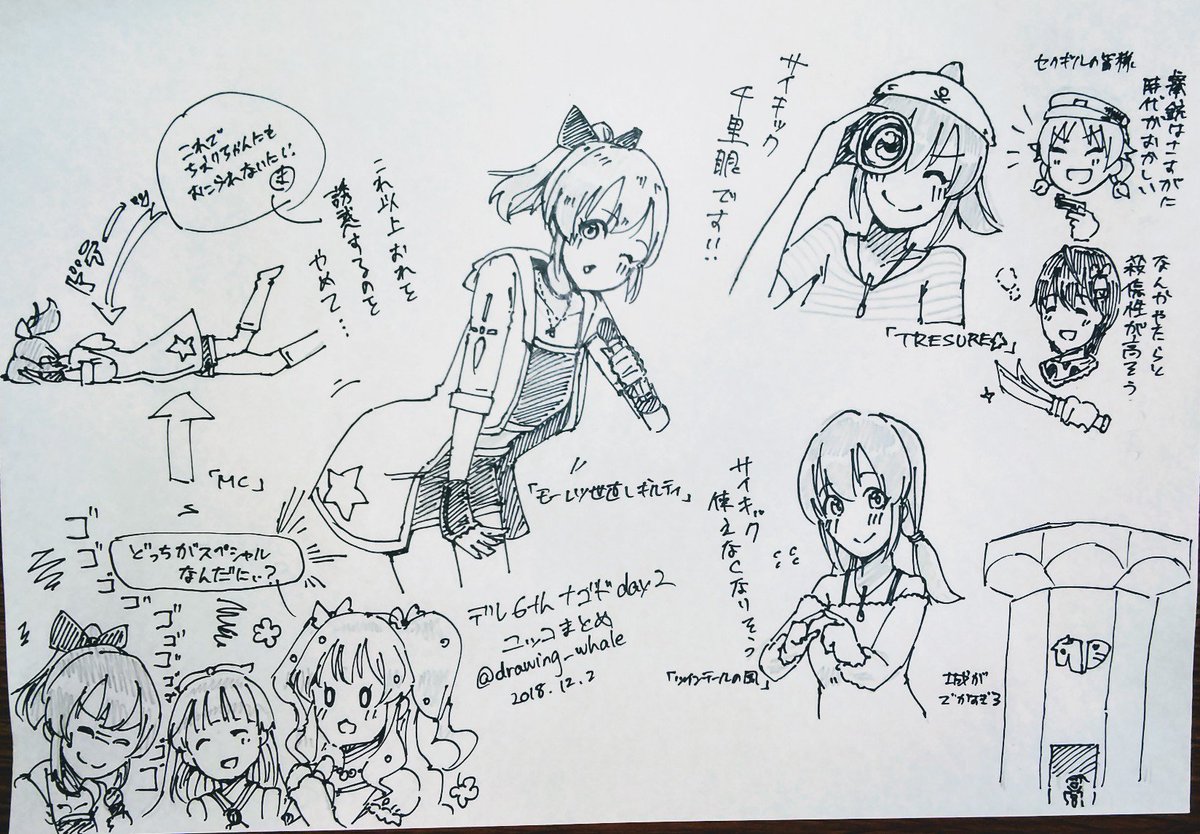 これで
ちえりちゃんたも
おこられないたい。
ドドドッ
これ以上おれを
誘惑するのを
やめて…
「MC」
「モーレツ★世直しギルティ」
サイキック
千里眼です!!
「TRESURE☆」
セクギルの皆様
拳銃はさすがに
時代がおかしい
なんかやたらと
殺傷性が高そう
どっちがスペシャル
なんだにぃ?
ゴゴゴゴ
ゴゴゴゴゴゴ
デレ6thナゴドday2
ユッコまとめ
@drawing_whale
2018.12.2
サイキック
使えなくなりそっ
「ツインテールの風」
城が
でかすぎる